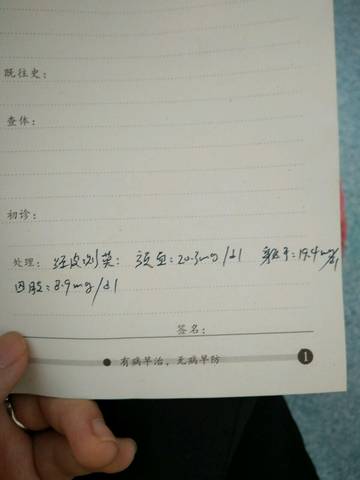 既往史：
查体：
初诊：
处理：经皮测黄：头面：20.3mg/dl 躯干：19.4mg/dl
四肢：8.9mg/dl
签名：
● 有病早治，无病早防 1